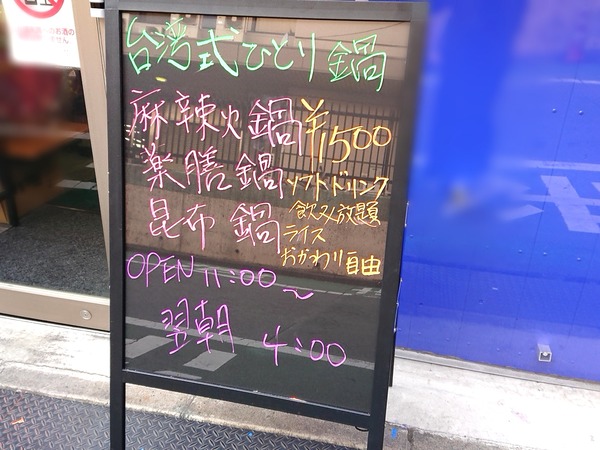 台湾式ひとり鍋
麻辣火鍋 ¥1500
薬膳鍋 ソフトドリンク
飲み放題
昆布鍋 ライス
おかわり自由
OPEN 11:00〜
翌朝 4:00